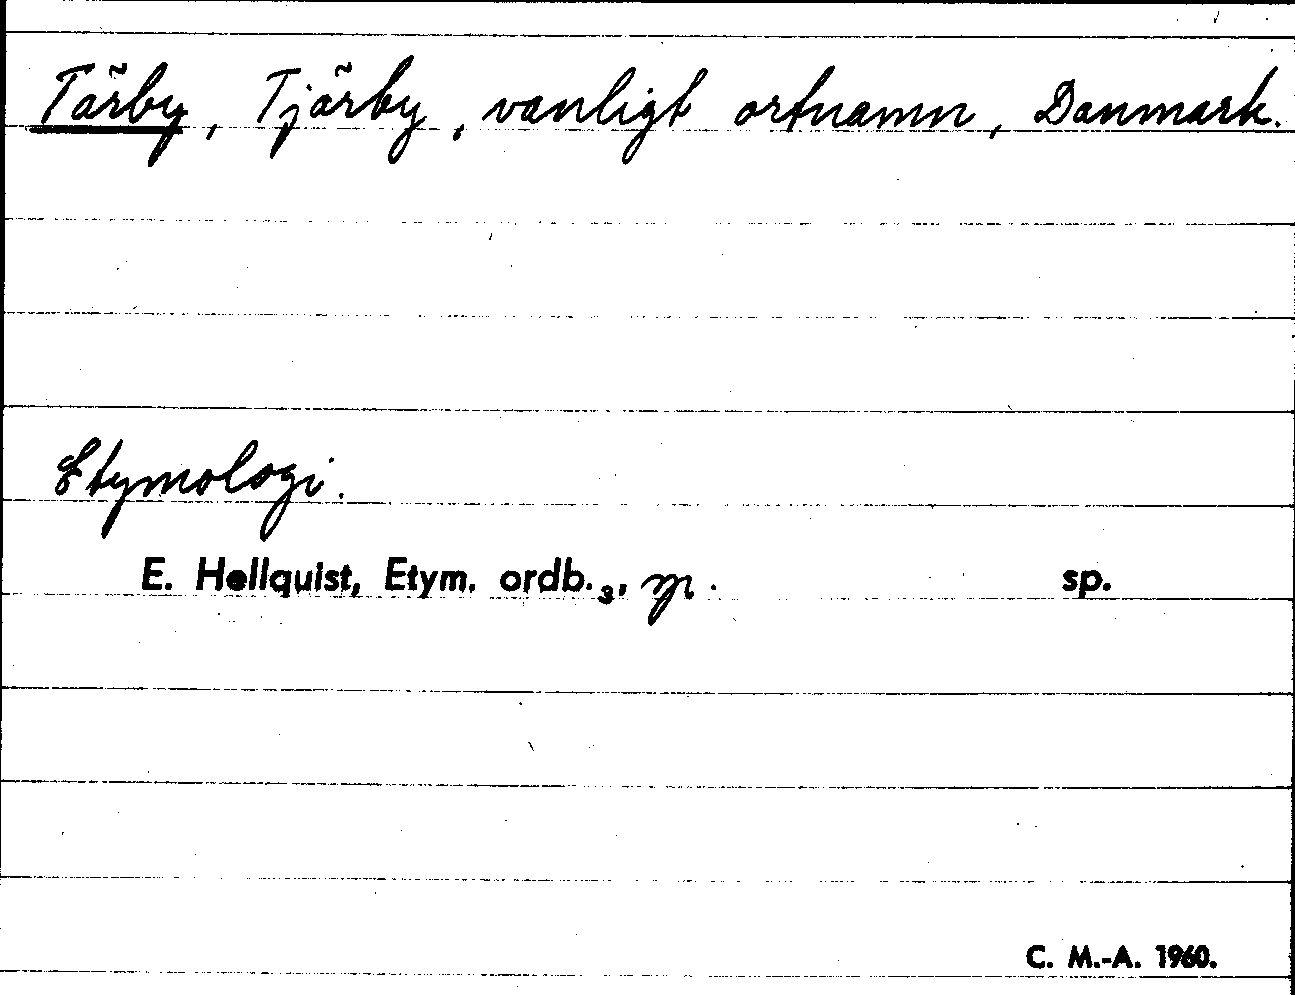 Tärby, Tjärby, vanligt ortnamn, Danmark.
Etymologi.
E. Hellquist, Etym. ordb.₃, sp.
C. M.-A. 1960.